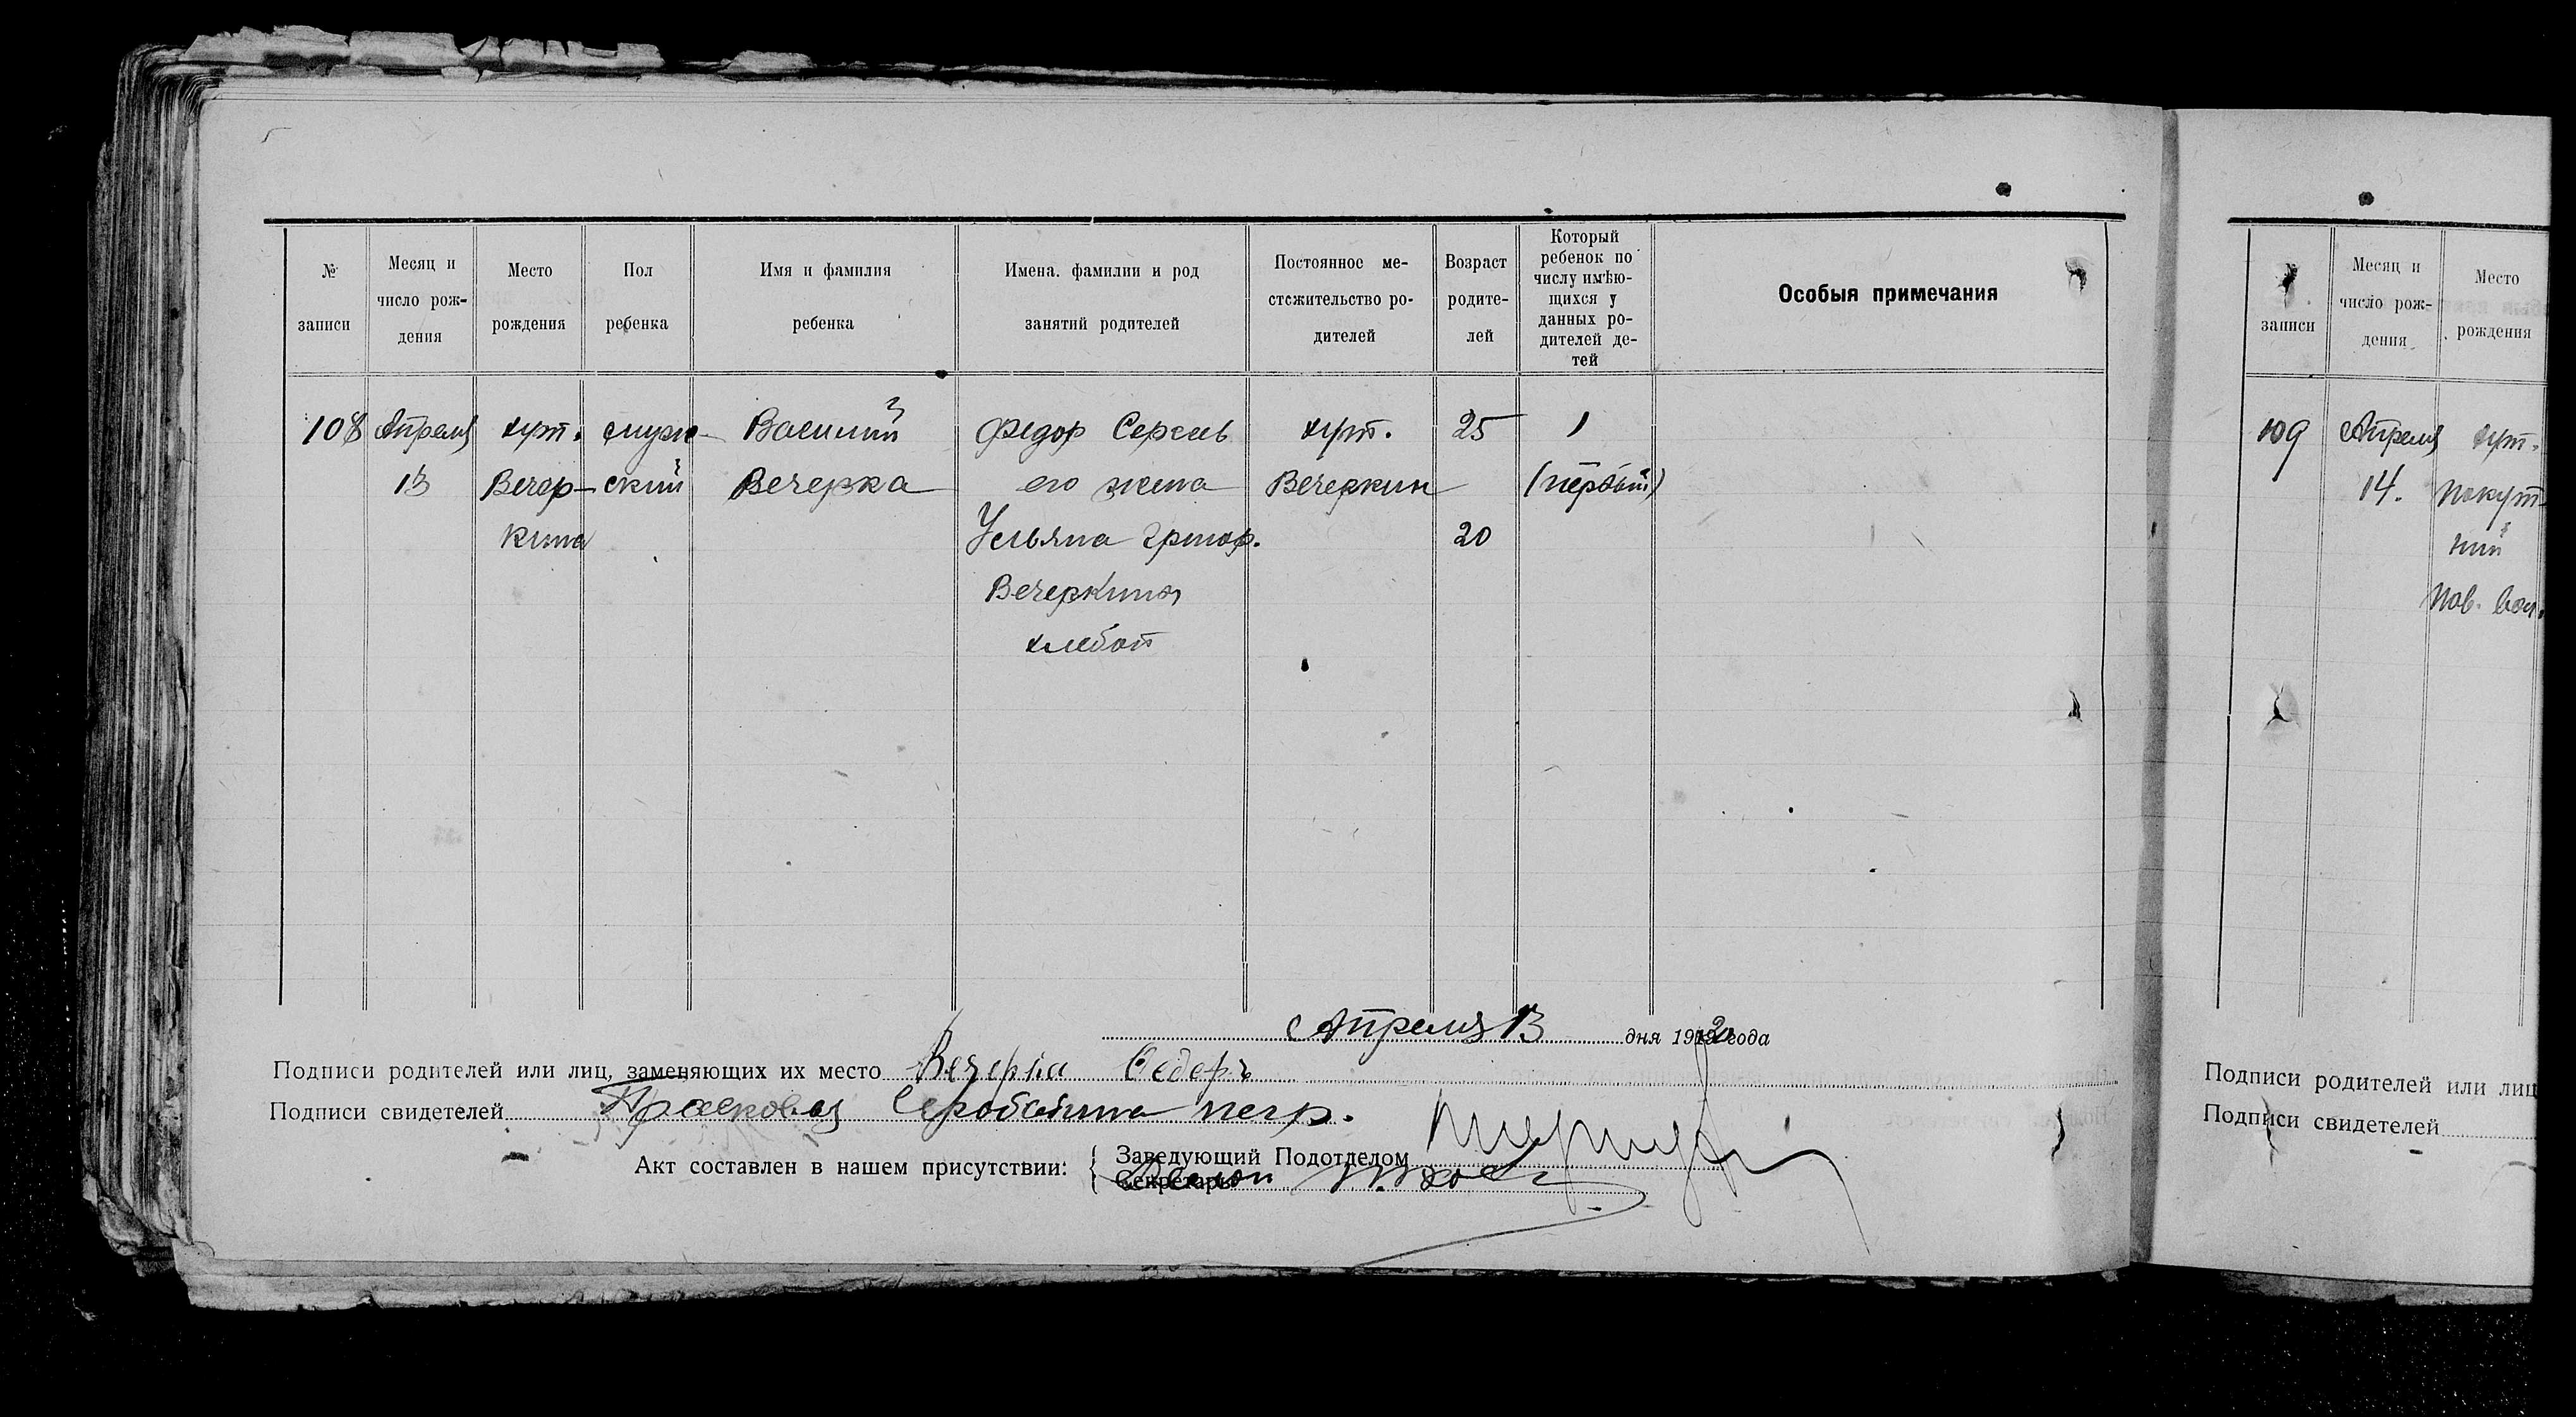 № записи
Месяц и число рождения
Место рождения
Пол ребенка
Имя и фамилия ребенка
Имена. фамилии и род занятий родителей
Постоянное местожительство родителей
Возраст родителей
Который ребенок по числу имѣющихся у данных родителей детей
Особыя примечания
108 Апреля хут. муж- Василий Федор Сергеев хут. 25 1
13 Вечер- ский Вечерка его жена Вечеркин (первый)
кина Ульяна Григор. 20
Вечеркина
хлебоп
Апреля 13 дня 1920 года
Подписи родителей или лиц, заменяющих их место Вечерка Ѳедоръ
Подписи свидетелей Прасковья негр.
Акт составлен в нашем присутствии:
Заведующий Подотделом
Секретарь
записи
Месяц и число рождения
Место рождения
109 Апреля хут.
14.
Подписи родителей или лиц
Подписи свидетелей